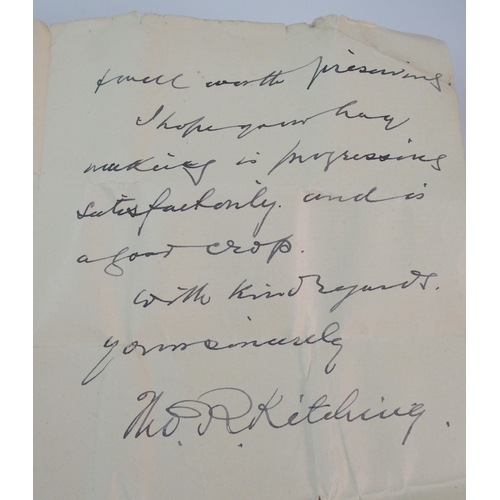 & well worth preserving.
I hope your hay
making is progressing
satisfactorily. and is
a good crop.
With kind regards.
yours sincerely
Tho. R. Kitching.